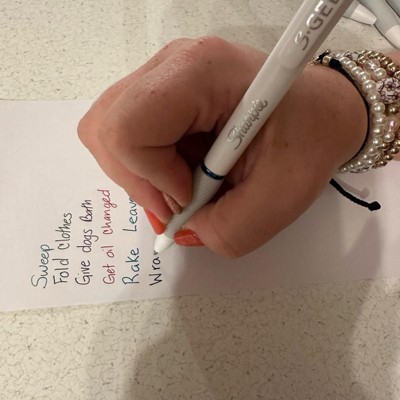 Sweep
Fold Clothes
Give dogs Bath
Get oil changed
Rake Leave
Wra
Sharpie
S·GEL